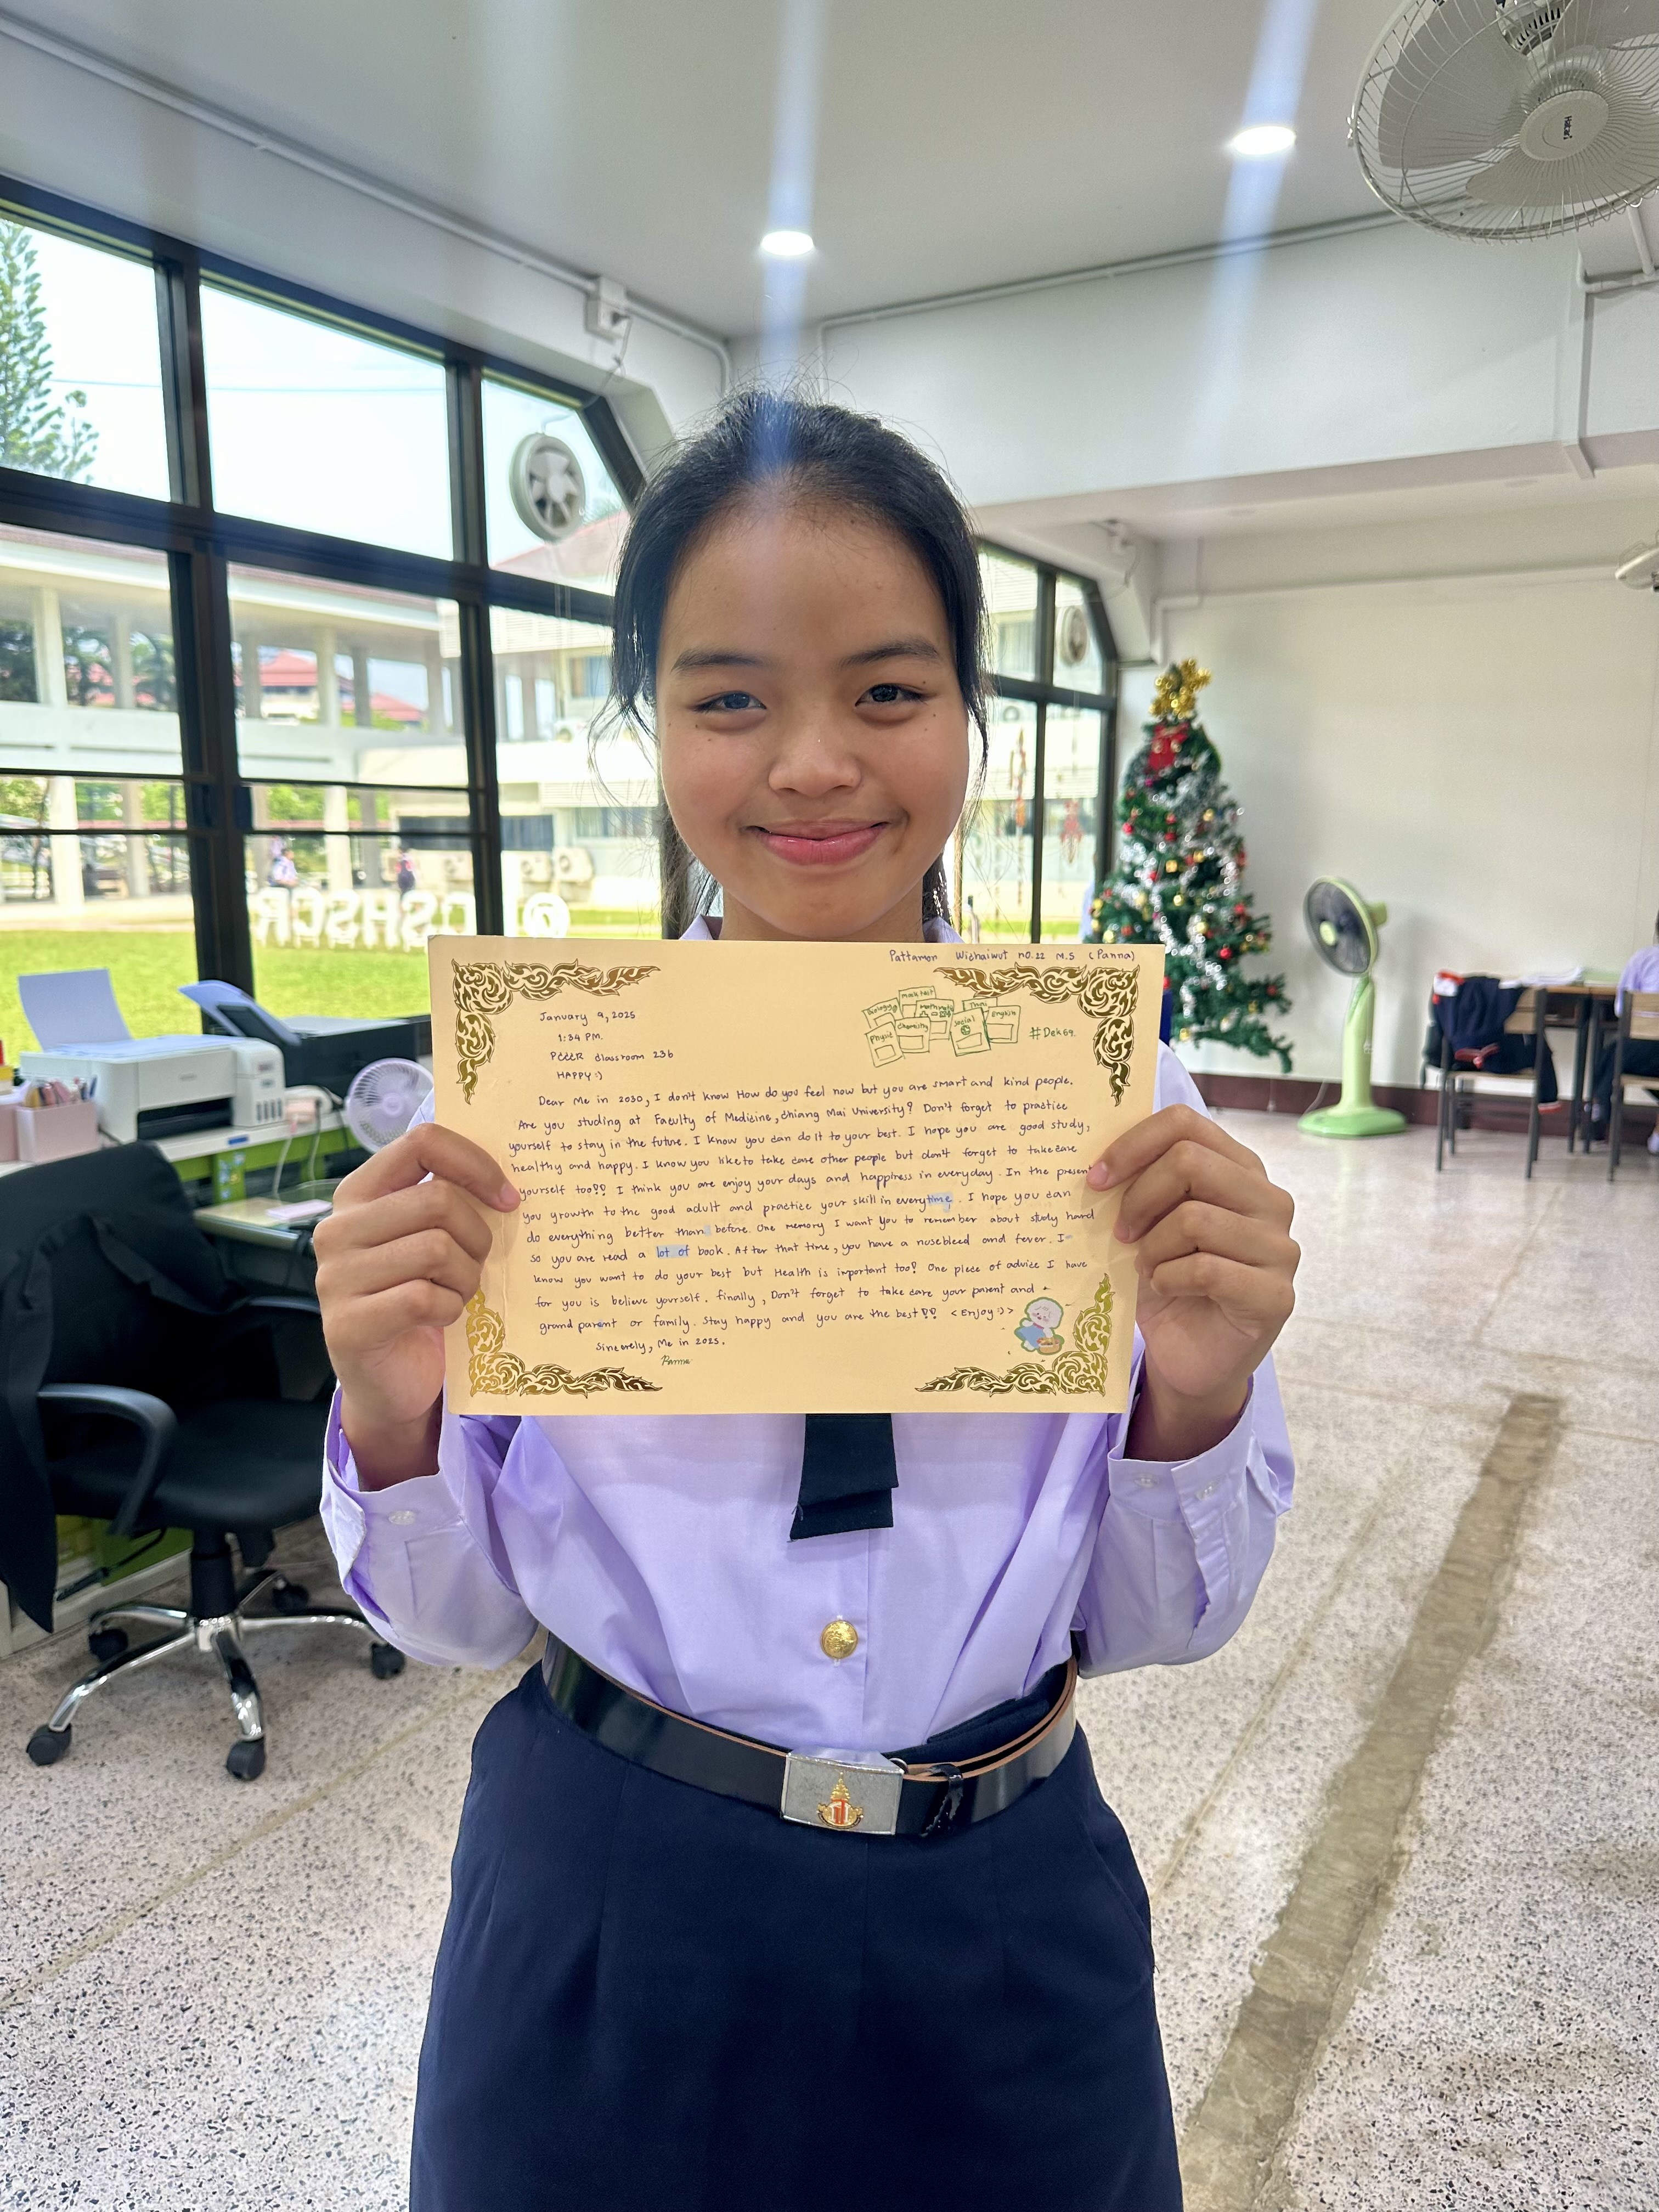 Hatari
PSHSCR
Pattamon Wichaiwut no.22 M.5 (Panna)
January 9, 2025
1:34 PM.
PCCCR Classroom 236
HAPPY :)
Biology
Math
Thai
English
Physic
Chemistry
Social
#Dek69.
Dear Me in 2030, I don't know How do you feel now but you are smart and kind people.
Are you studing at Faculty of Medicine, Chiang Mai University? Don't forget to practice
yourself to stay in the future. I know you can do it to your best. I hope you are good study,
healthy and happy. I know you like to take care other people but don't forget to takecare
yourself too!! I think you are enjoy your days and happiness in everyday. In the present
you growth to the good adult and practice your skill in everytime. I hope you can
do everything better than before. One memory I want you to remember about study hard
so you are read a lot of book. After that time, you have a nosebleed and fever. I
know you want to do your best but Health is important too! One piece of advice I have
for you is believe yourself. Finally, Don't forget to take care your parent and
grandparent or family. Stay happy and you are the best!! <Enjoy :)>
Sincerely, Me in 2025.
Panna